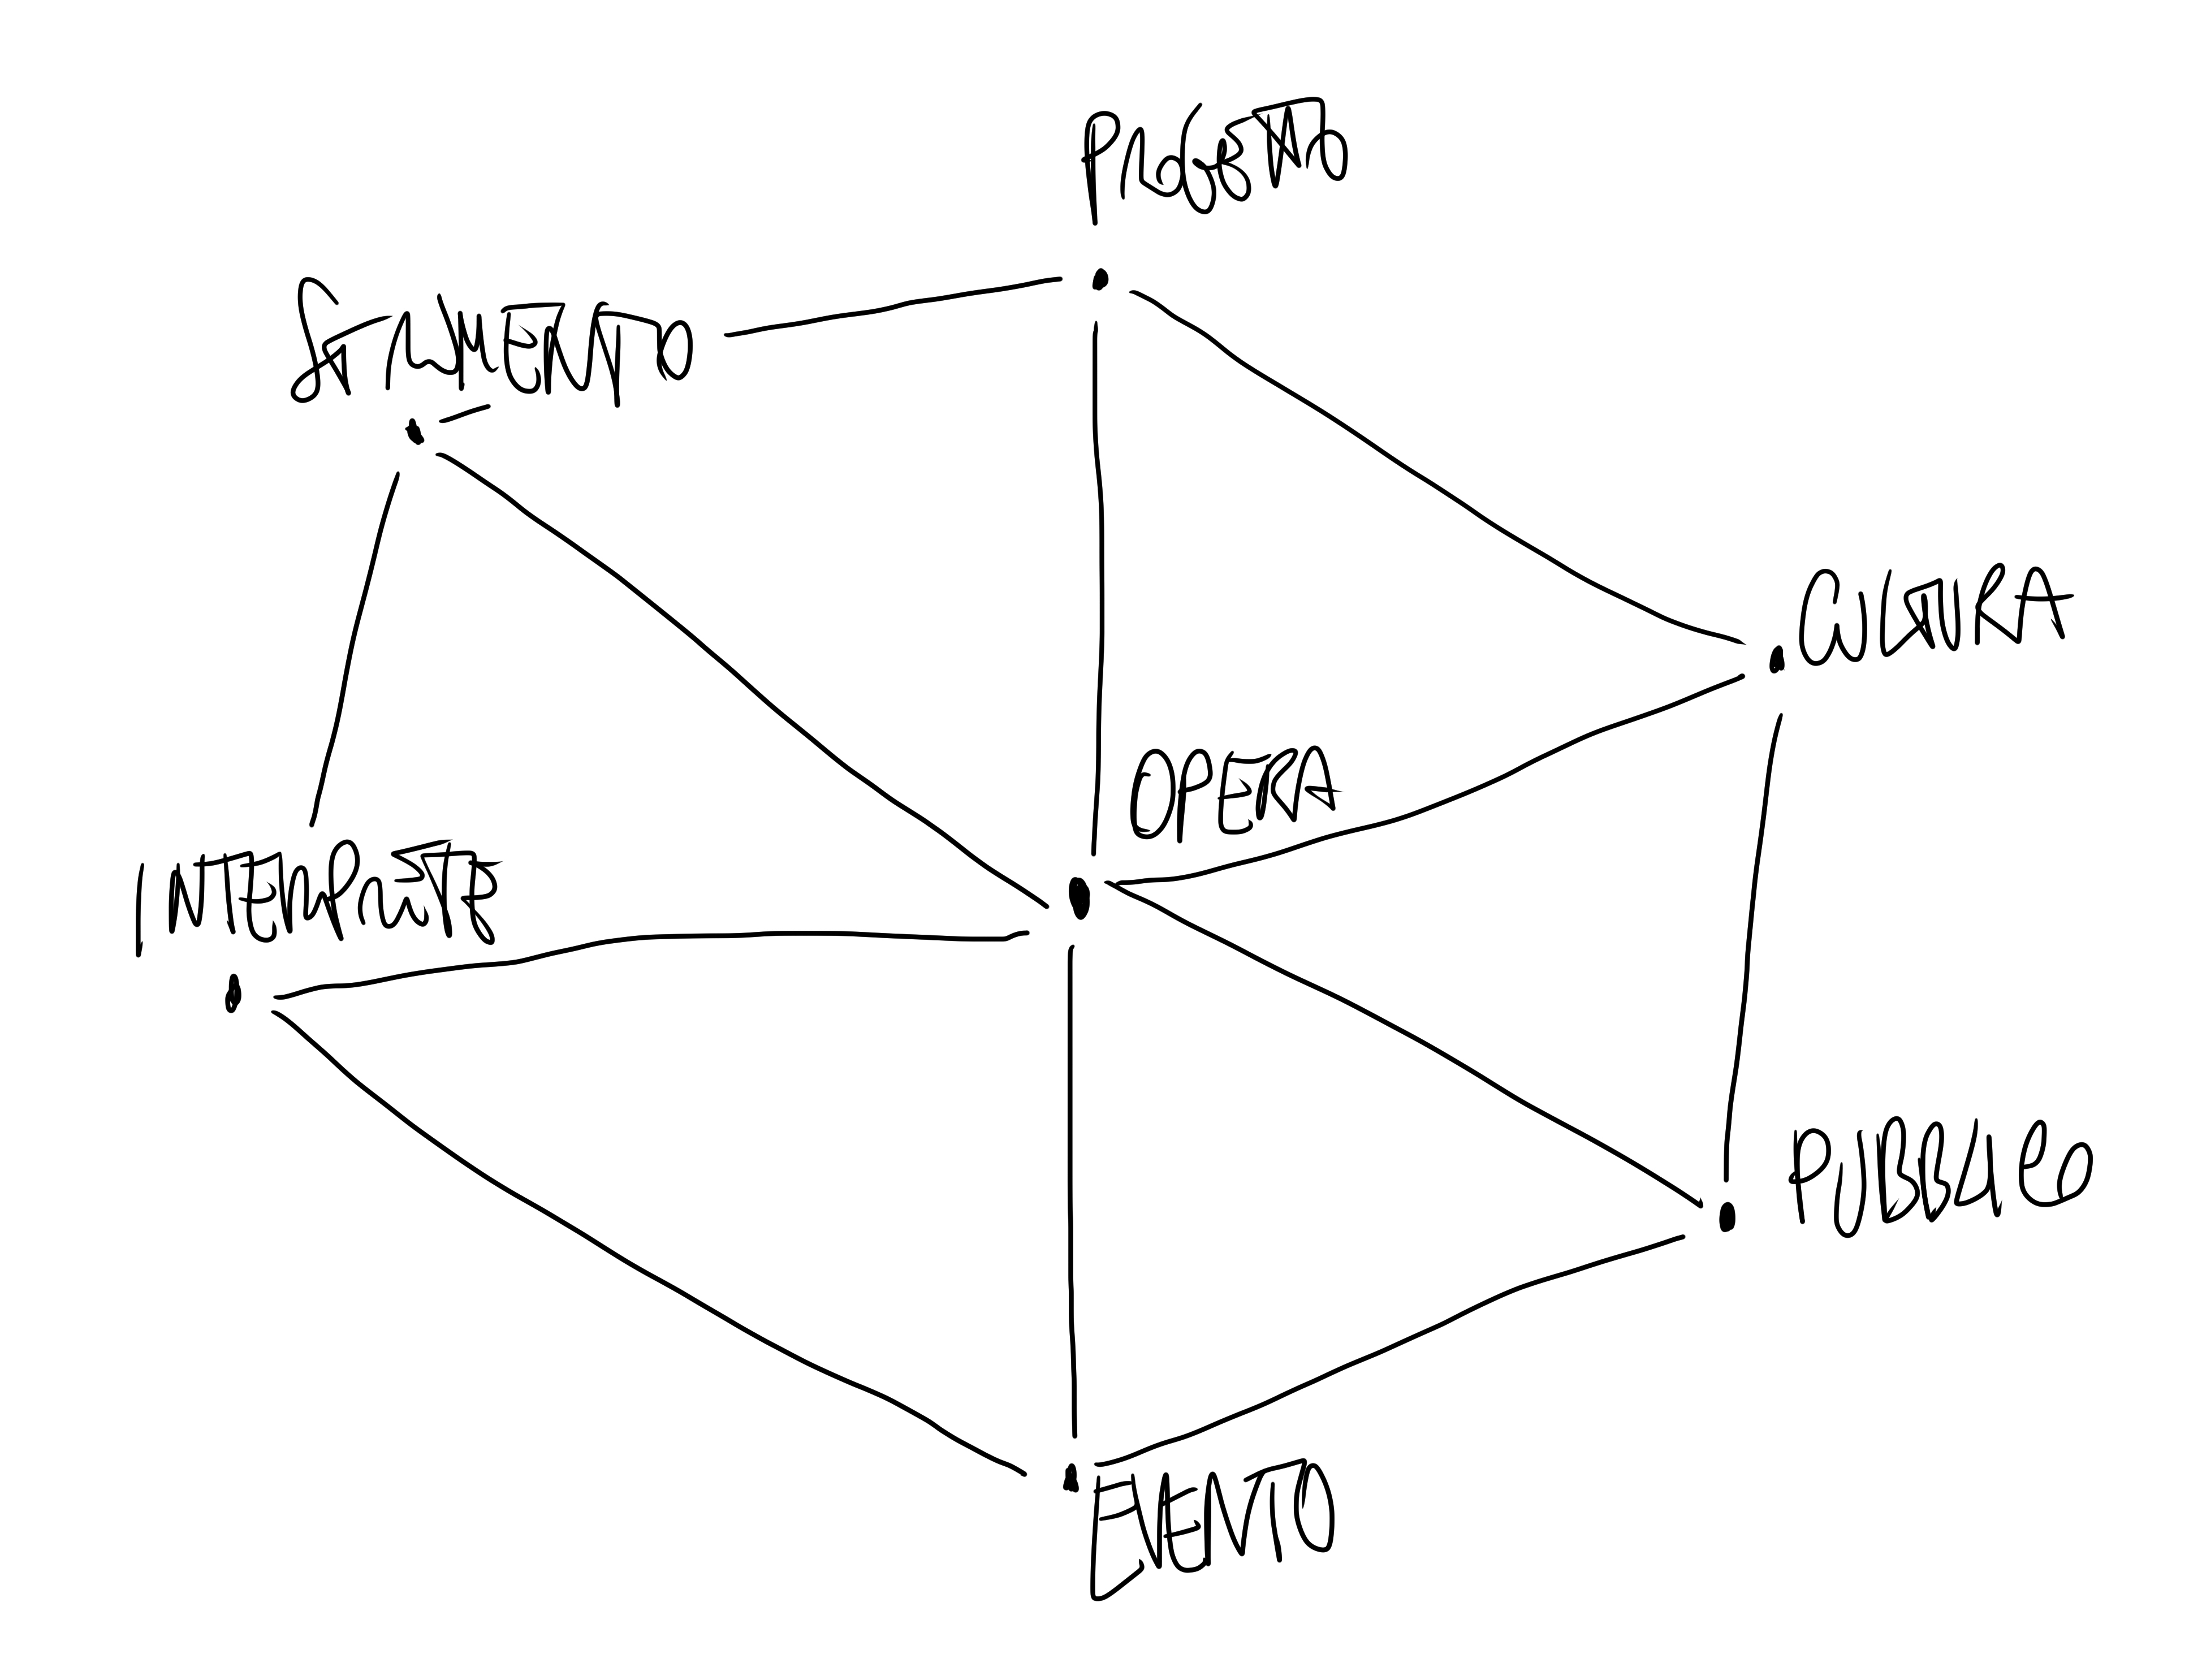 PROGETTO
STRUMENTO
CULTURA
OPERA
INTERPRETE
PUBBLICO
EVENTO